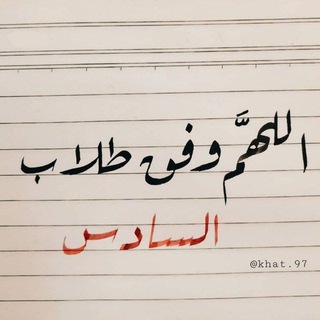 اللهمَّ وفق طلاب
السادس
@khat.97